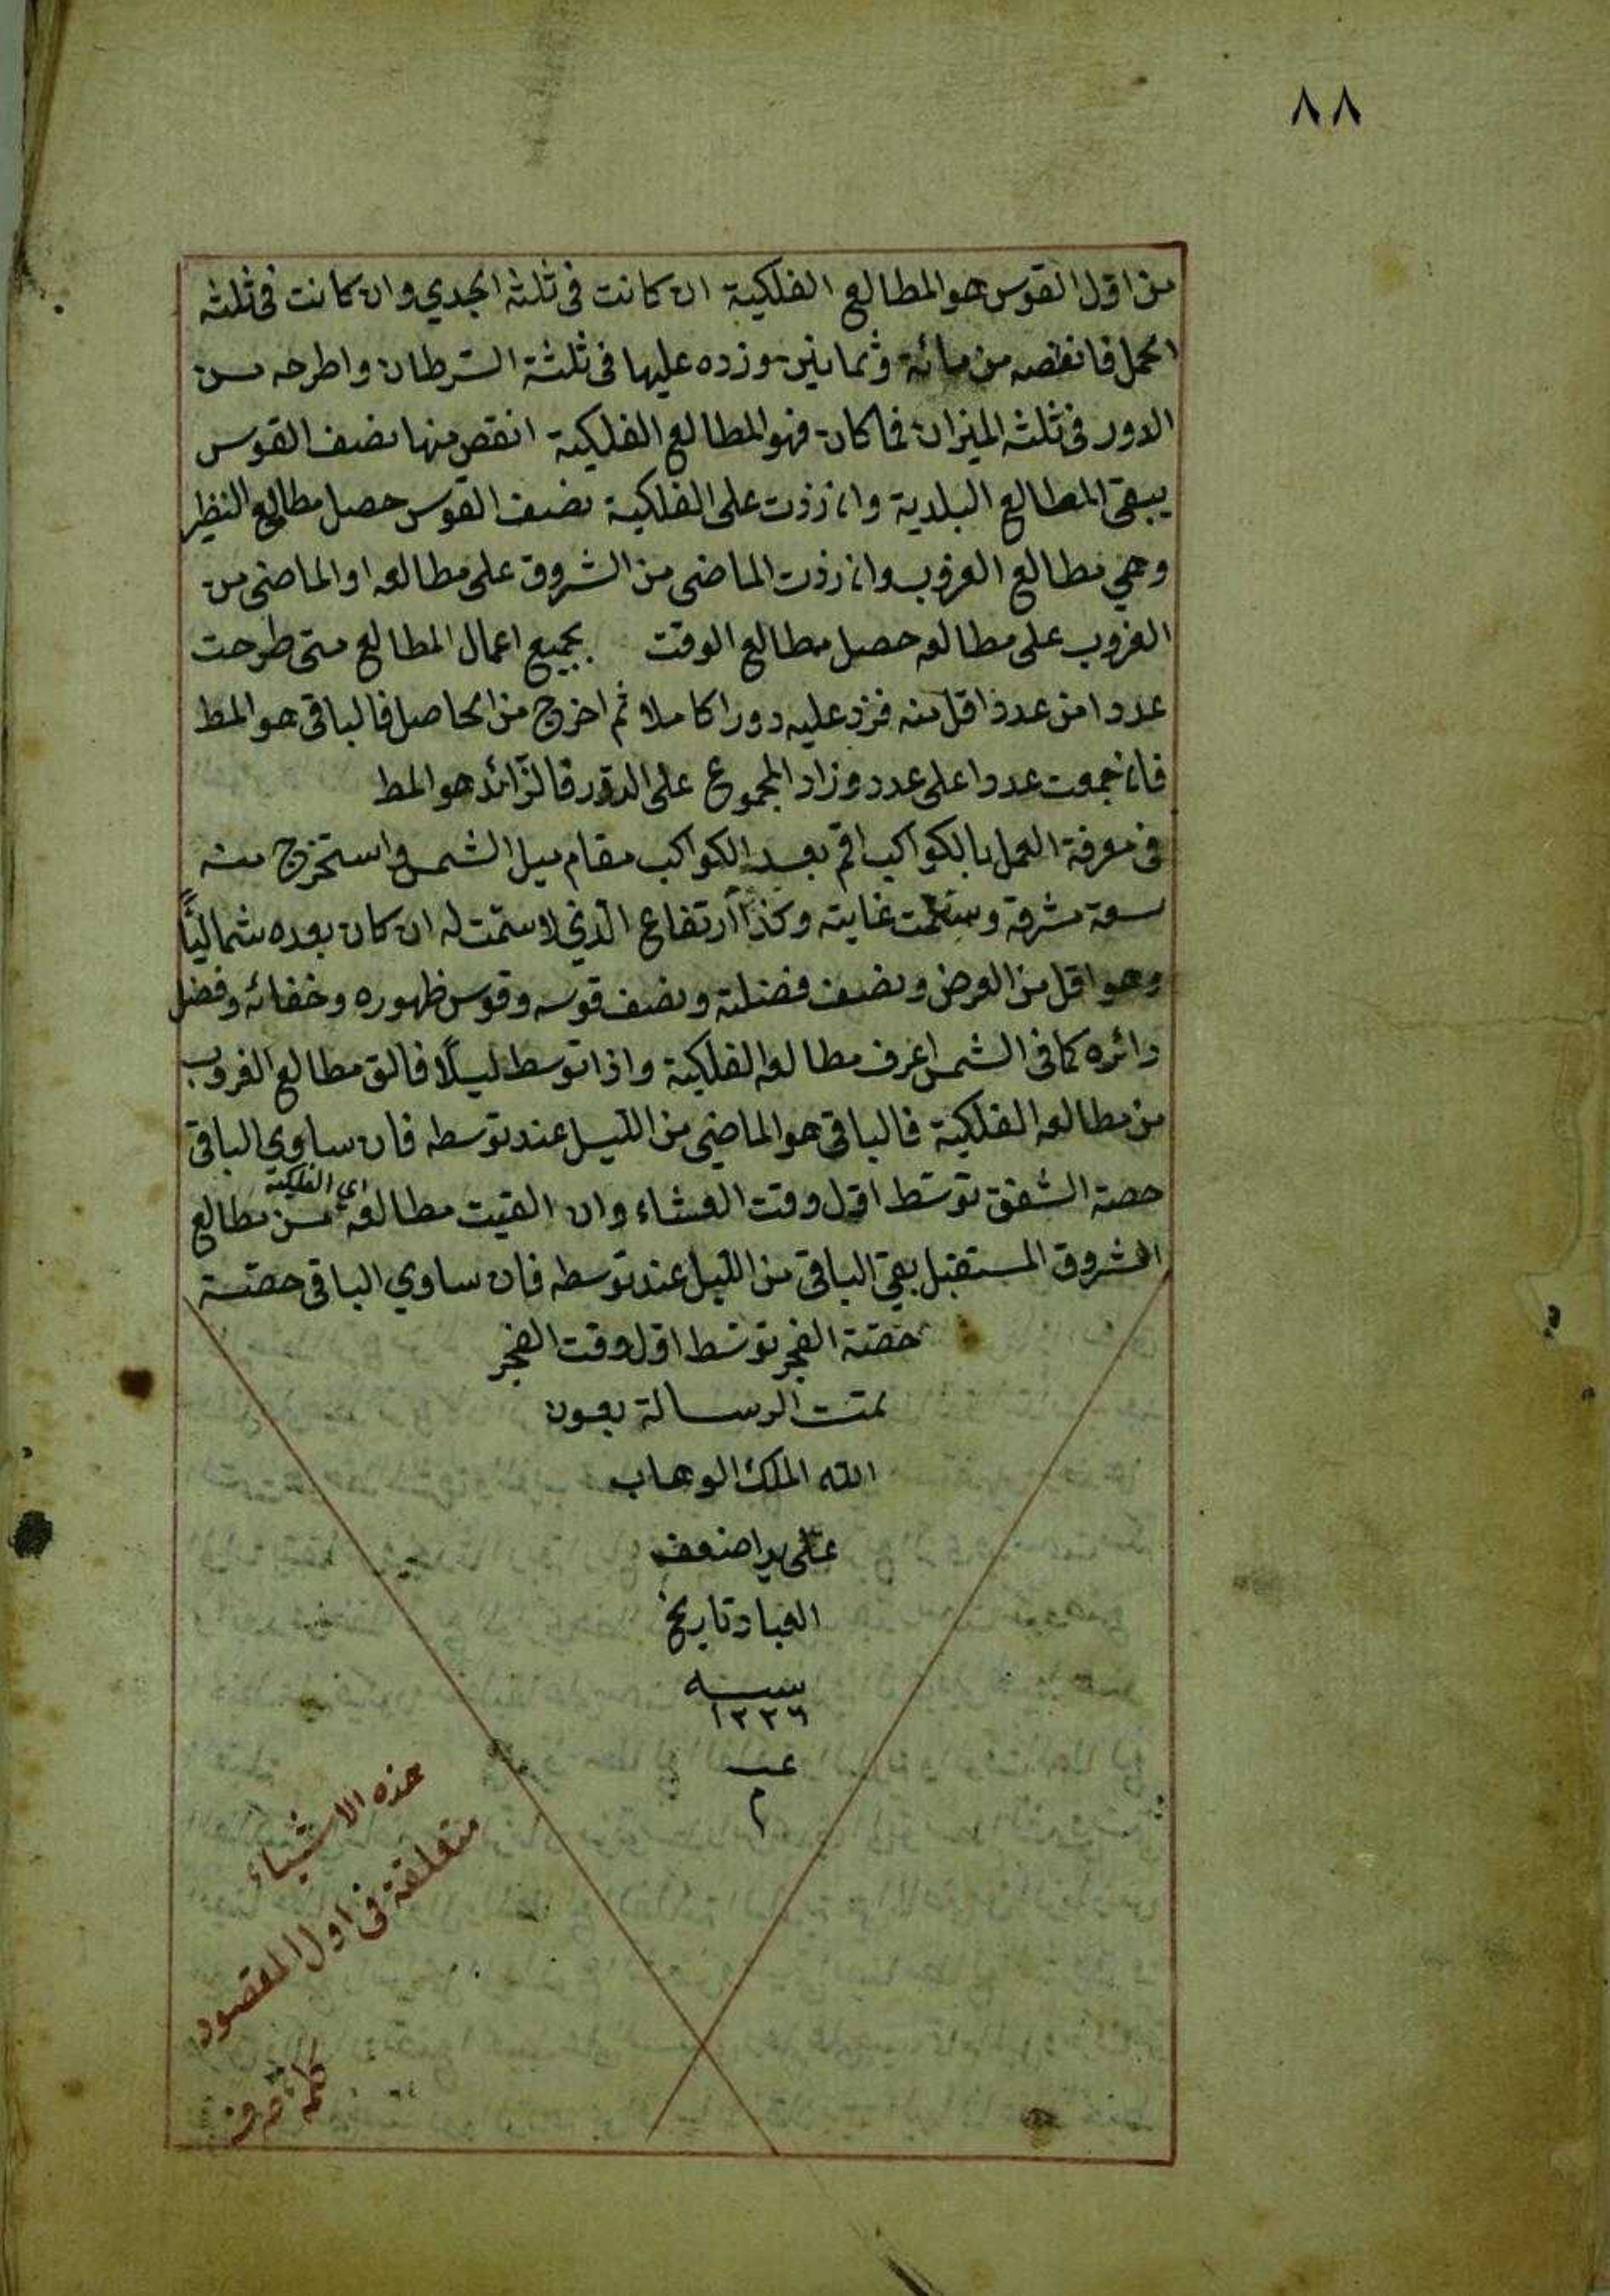 ٨٨
من اول القوس هو المطالع الفلكية ان كانت فى ثلثه الجدي وان كانت فى ثلثه
الحمل فانقصه من مائة وثمانين وزده عليها فى ثلثة السرطان واطرحه من
الدور فى ثلثه الميزان فما كان فهو المطالع الفلكية انقص منها نصف القوس
يبقى المطالع البلدية وان زذت على الفلكية نصف القوس حصل مطالع النظير
وهي مطالع الغروب وان زذت الماضى من الشروق على مطالعه او الماضى من
الغروب على مطالعه حصل مطالع الوقت بجميع اعمال المطالع متى طرحت
عددا من عدد اقل منه فزد عليه دورا كاملا ثم اخرج من الحاصل فالباقى هو المط
فان جمعت عددا على عدد وزاد المجموع على الدور فالزائد هو المط
فى معرفة العمل بالكواكب اقم بعد الكواكب مقام ميل الشمس واستخرج منه
سعة مشرقة وسمت غايته وكذا ارتفاع الذي لا سمت له ان كان بعده شماليًا
وهو اقل من العرض ونصف فضلته ونصف قوسه وقوس ظهوره وخفائه وفضل
دائره كما فى الشمس اعرف مطالعه الفلكية واذا توسط ليلًا فالق مطالع الغروب
من مطالعه الفلكية فالباقى هو الماضى من الليل عند توسطه فان ساوي الباقى
حصة الشفق توسط اول وقت العشاء وان القيت مطالعه من مطالع
اي الفلكية
الشروق المستقبل بقى الباقى من الليل عند توسطه فان ساوي الباقى حصة
حصة الفجر توسط اول وقت الفجر
تمت الرسالة بعون
الله الملك الوهاب
على يد اضعف
العباد تاريخ
سنه
١٢٢٦
م
هذه الاشياء
متعلقة فى اول المقصود